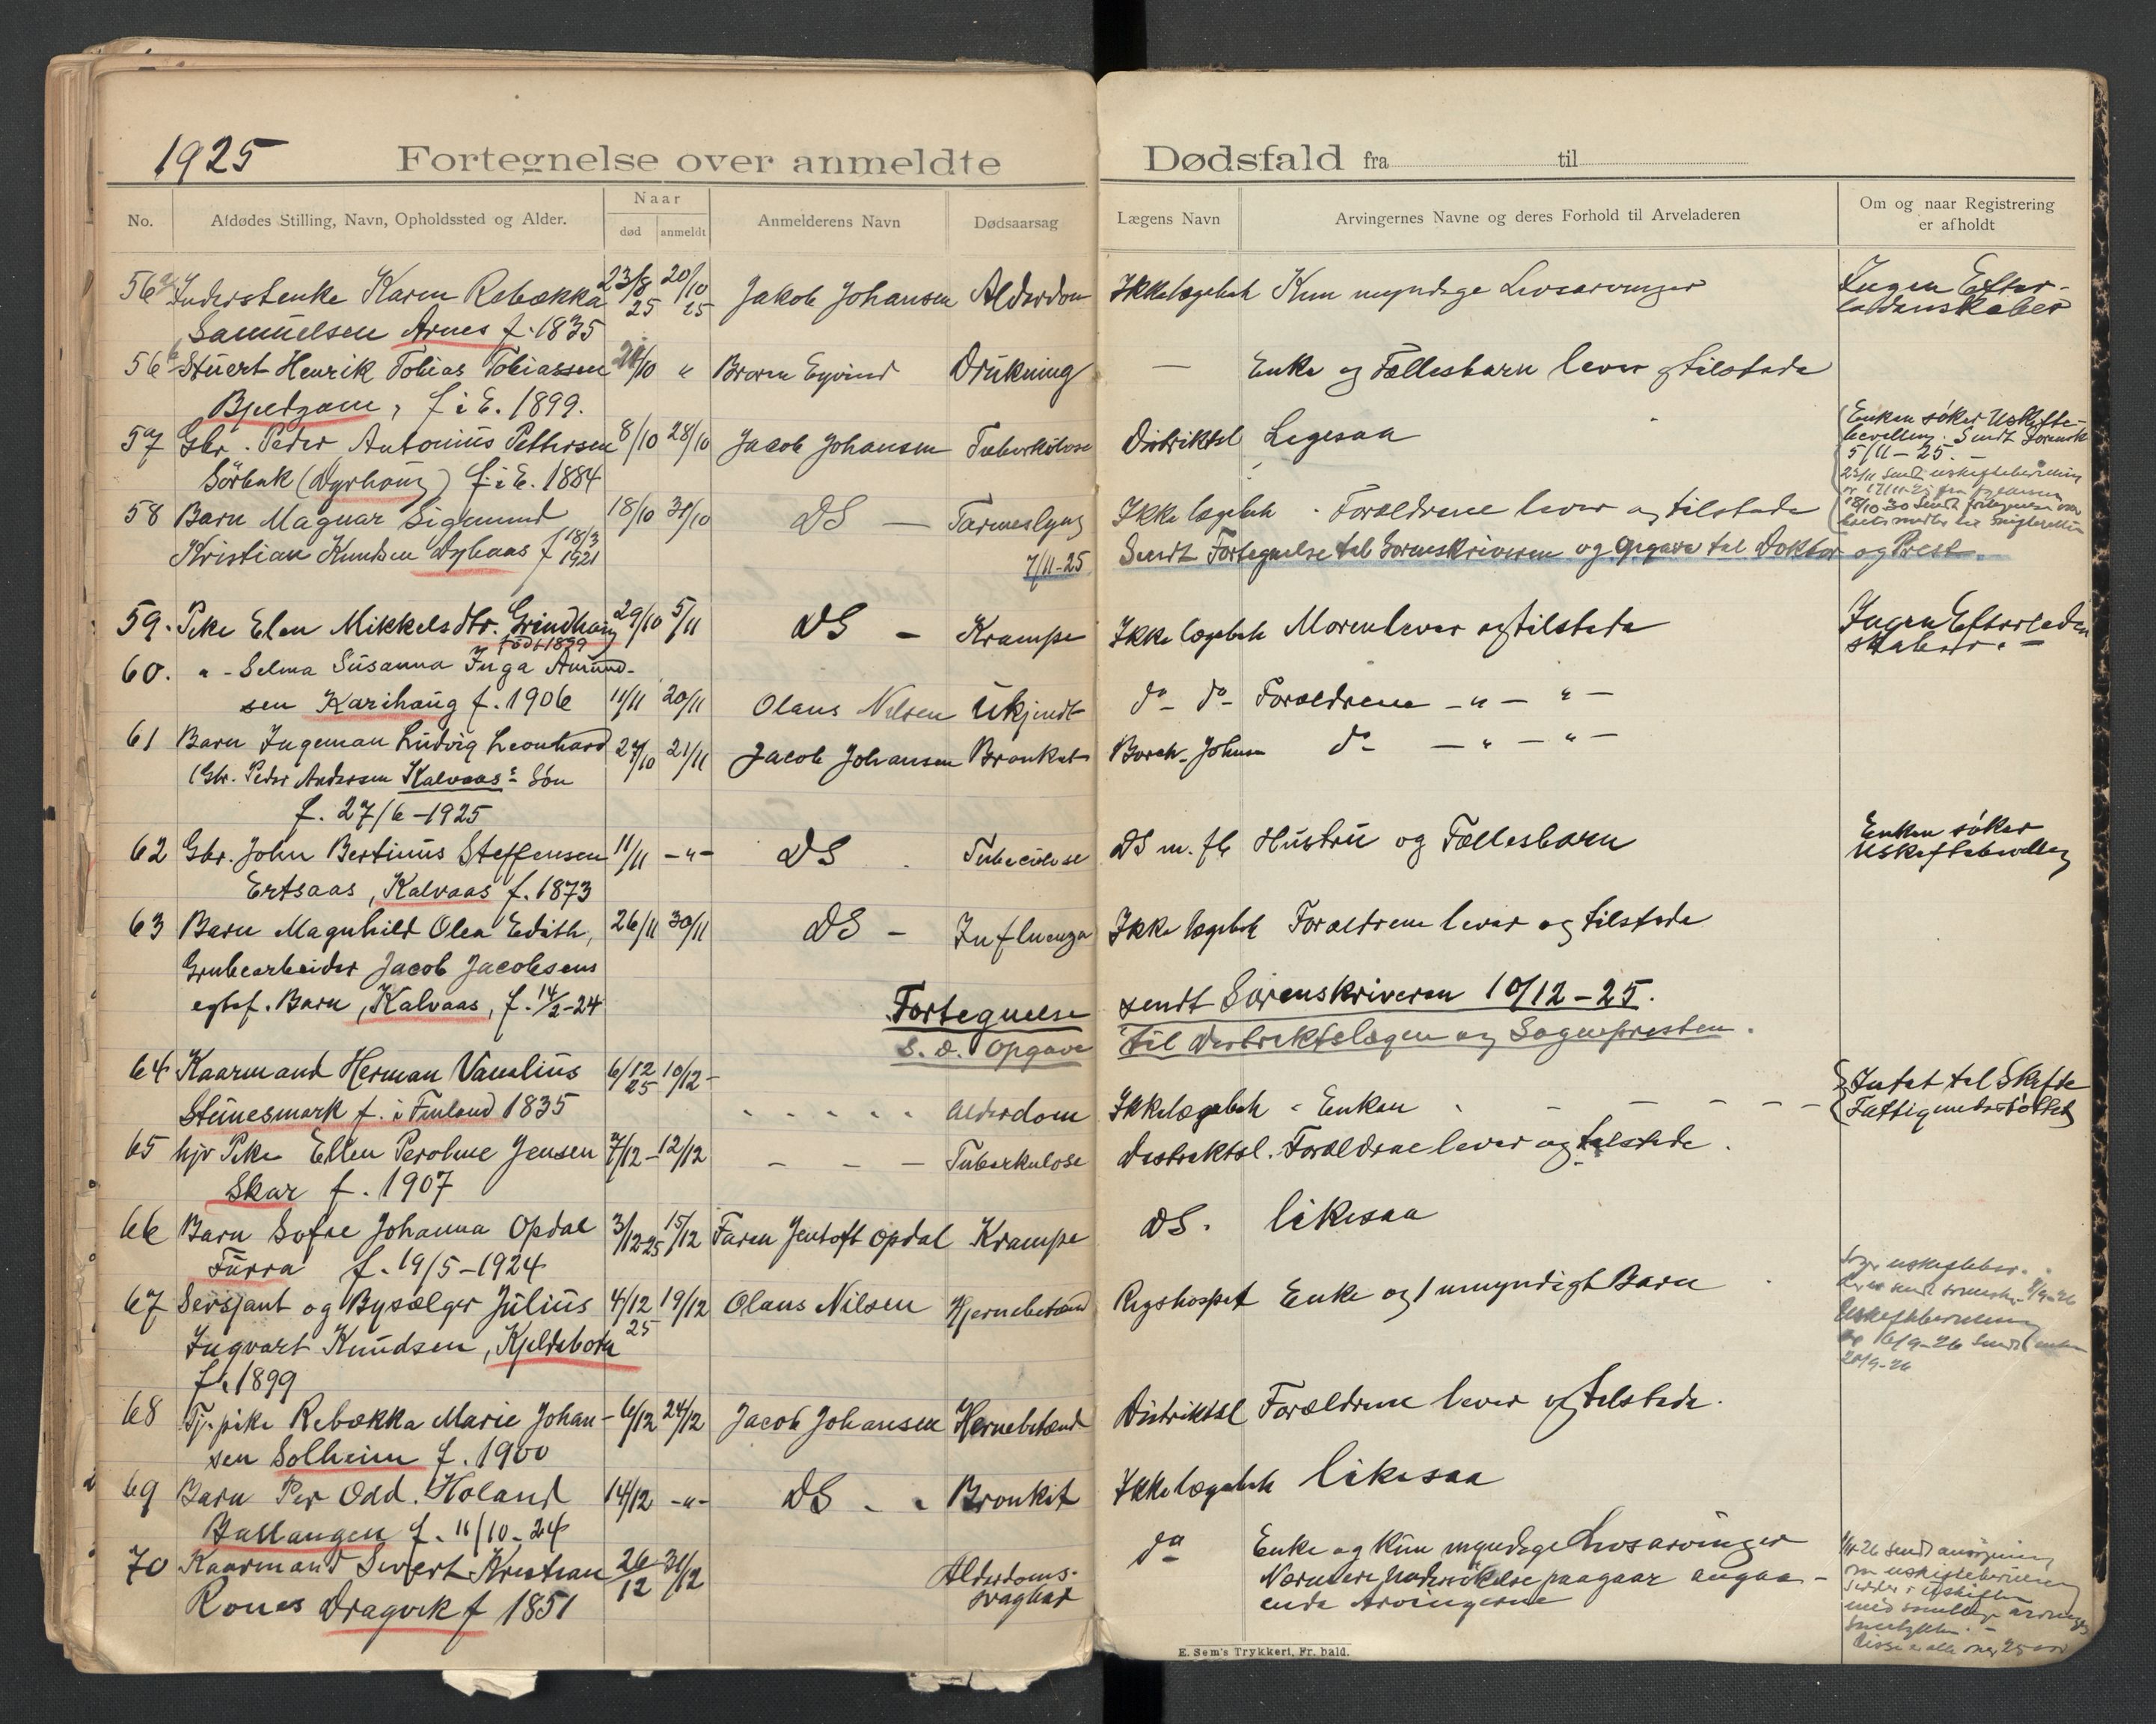 1925
Fortegnelse over anmeldte Dødsfald fra til
No. Afdødes Stilling, Navn, Opholdssted og Alder. Naar død anmeldt Anmelderens Navn Dødsaarsag Lægens Navn Arvingernes Navne og deres Forhold til Arveladeren Om og naar Registrering er afholdt
56a Inderstenke Karen Rebekka 23/8 25 20/10 25 Jakob Johansen Alderdom Ikke lægebeh Kun myndige Livsarvinger Ingen Efter-
Samuelsen Arnes f. 1835 ladenskaber
56b Stuert Henrik Tobias Tobiassen 20/10 " Broren Eyvind Drukning — Enke og Fællesbarn lever og tilstede
Bjedgam, f i E. 1899.
57 Gbr. Peder Antonius Pettersen 8/10 28/10 Jacob Johansen Tuberkulose Distriktsl Ligesaa Enken søker Uskifte-
Sörbak (Dyrhaug) f. i E. 1884 bevilling. Sendt Sorensk
5/11-25.
58 Barn Magnar Sigmund 18/10 31/10 DS — Tarmeslyng Ikke lægebeh. Forældrene lever og tilstede
Kristian Knudsen Dyhaas f 18/3 1921
7/11-25 Sendt Fortegnelse til Sorenskriveren og Opgave til Doktor og Prest.
59. Pike Elen Mikkelsdtr. Grindhaug 29/10 5/11 DS — Krampe Ikke lægebeh Moren lever og tilstede Ingen Efterladen
född 1899 skaber. —
60. " - Selma Susanna Inga Amund-
sen Karihaug f. 1906 11/11 20/11 Olaus Nilsen Ukjendt do do Forældrene - " - " -
61 Barn Ingeman Ludvig Leonhard 27/10 21/11 Jacob Johansen Bronkit Borch-Johnsen do - " - " -
(Gbr. Peder Andersen Kalvaas: Sön
f. 27/6-1925
62 Gbr. John Bertinus Steffensen 11/11 -"- DS Tuberculose DS m. fl Hustru og Fællesbarn Enken søker
Ertsaas, Kalvaas f. 1873 Uskiftebevilling
63 Barn Magnhild Olea Edith, 26/11 30/11 DS - Influenza Ikke lægebeh Forældrene lever og tilstede
Grubearbeider Jacob Jacobsens
egtef. Barn, Kalvaas, f. 14/2-24
Fortegnelse sendt Sorenskriveren 10/12-25.
S. D. Opgave til Distriktslægen og Sognepresten.
64 Kaarmand Herman Vamlius 6/12 25 10/12 - Alderdom Ikke lægebeh - Enken Intet til Skifte
Steinesmark f. i Finland 1835 Fattigunderstöttet
65 hjv Pike Ellen Peroline Jensen 7/12 - 12/12 - - - Tuberkulose Distriktsl. Forældrene lever og tilstede.
Skar f. 1907
66 Barn Sofie Johanna Opdal 3/12-25 15/12 Faren Jentoft Opdal Krampe DS. likesaa
Furra f. 19/5-1924
67 Sersjant og Bysælger Julius 4/12 25 19/12 Olaus Nilsen Hjernebetænd Rigshospit Enke og 1 umyndigt Barn
Ingvart Knudsen, Kjeldebotn
f. 1899
Uskiftebevilling
20/9-26
68 Tj. pike Rebækka Marie Johan- 6/12 24/12 Jacob Johansen Hernebetænd Distriktsl Forældrene lever og tilstede.
sen Solheim f. 1900
69 Barn Per Odd. Holand 14/12 -"- DS - " Bronkit Ikke lægebeh likesaa
Ballangen f. 11/10-24
70 Kaarmand Sivert Kristian 26/12 31/12 Alderdoms- do Enke og Kun myndige Livsarvinger
Rones Dragvik f 1851 svaghet Nærmere Undersökelse paagaar angaa-
ende Arvingerne
med samtlige arvinges
samtykke. -
Disse er alle over 25 aar
E. Sem's Trykkeri, Fr. hald.